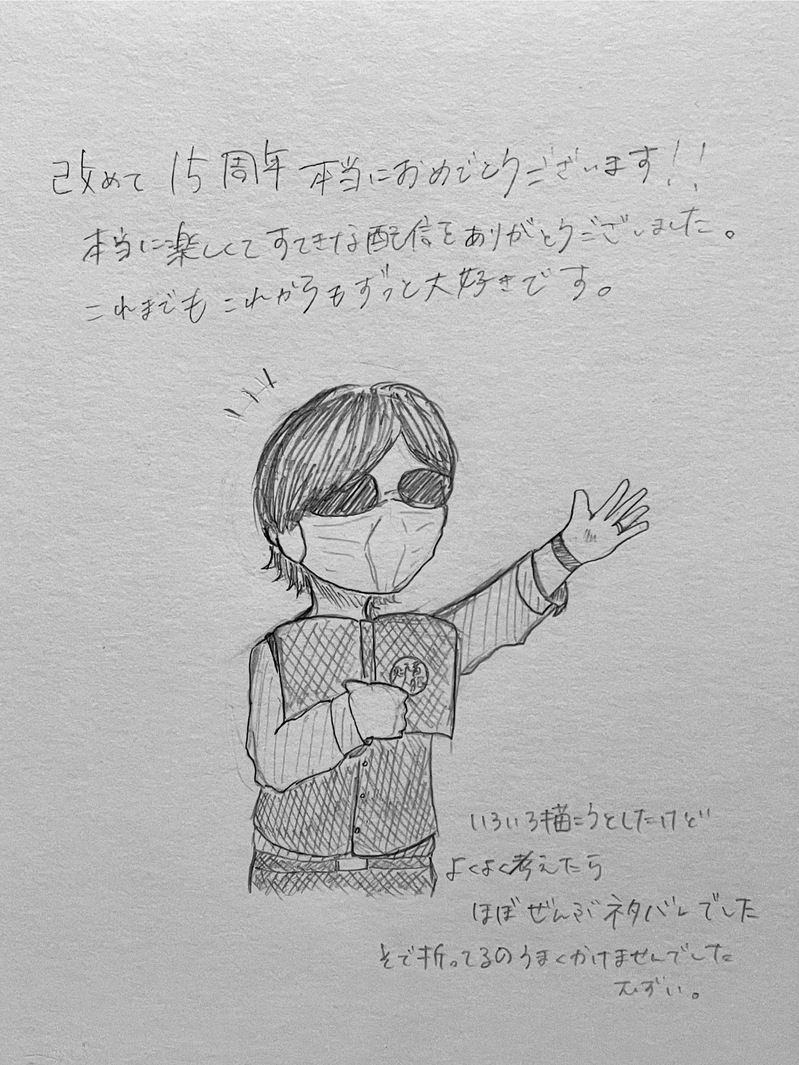 改めて 15周年 本当におめでとうございます!!
本当に楽しくてすてきな配信をありがとうございました。
これまでもこれからもずっと大好きです。
いろいろ描こうとしたけど
よくよく考えたら
ほぼぜんぶネタバレでした
そで折ってるのうまくかけませんでした
むずい。